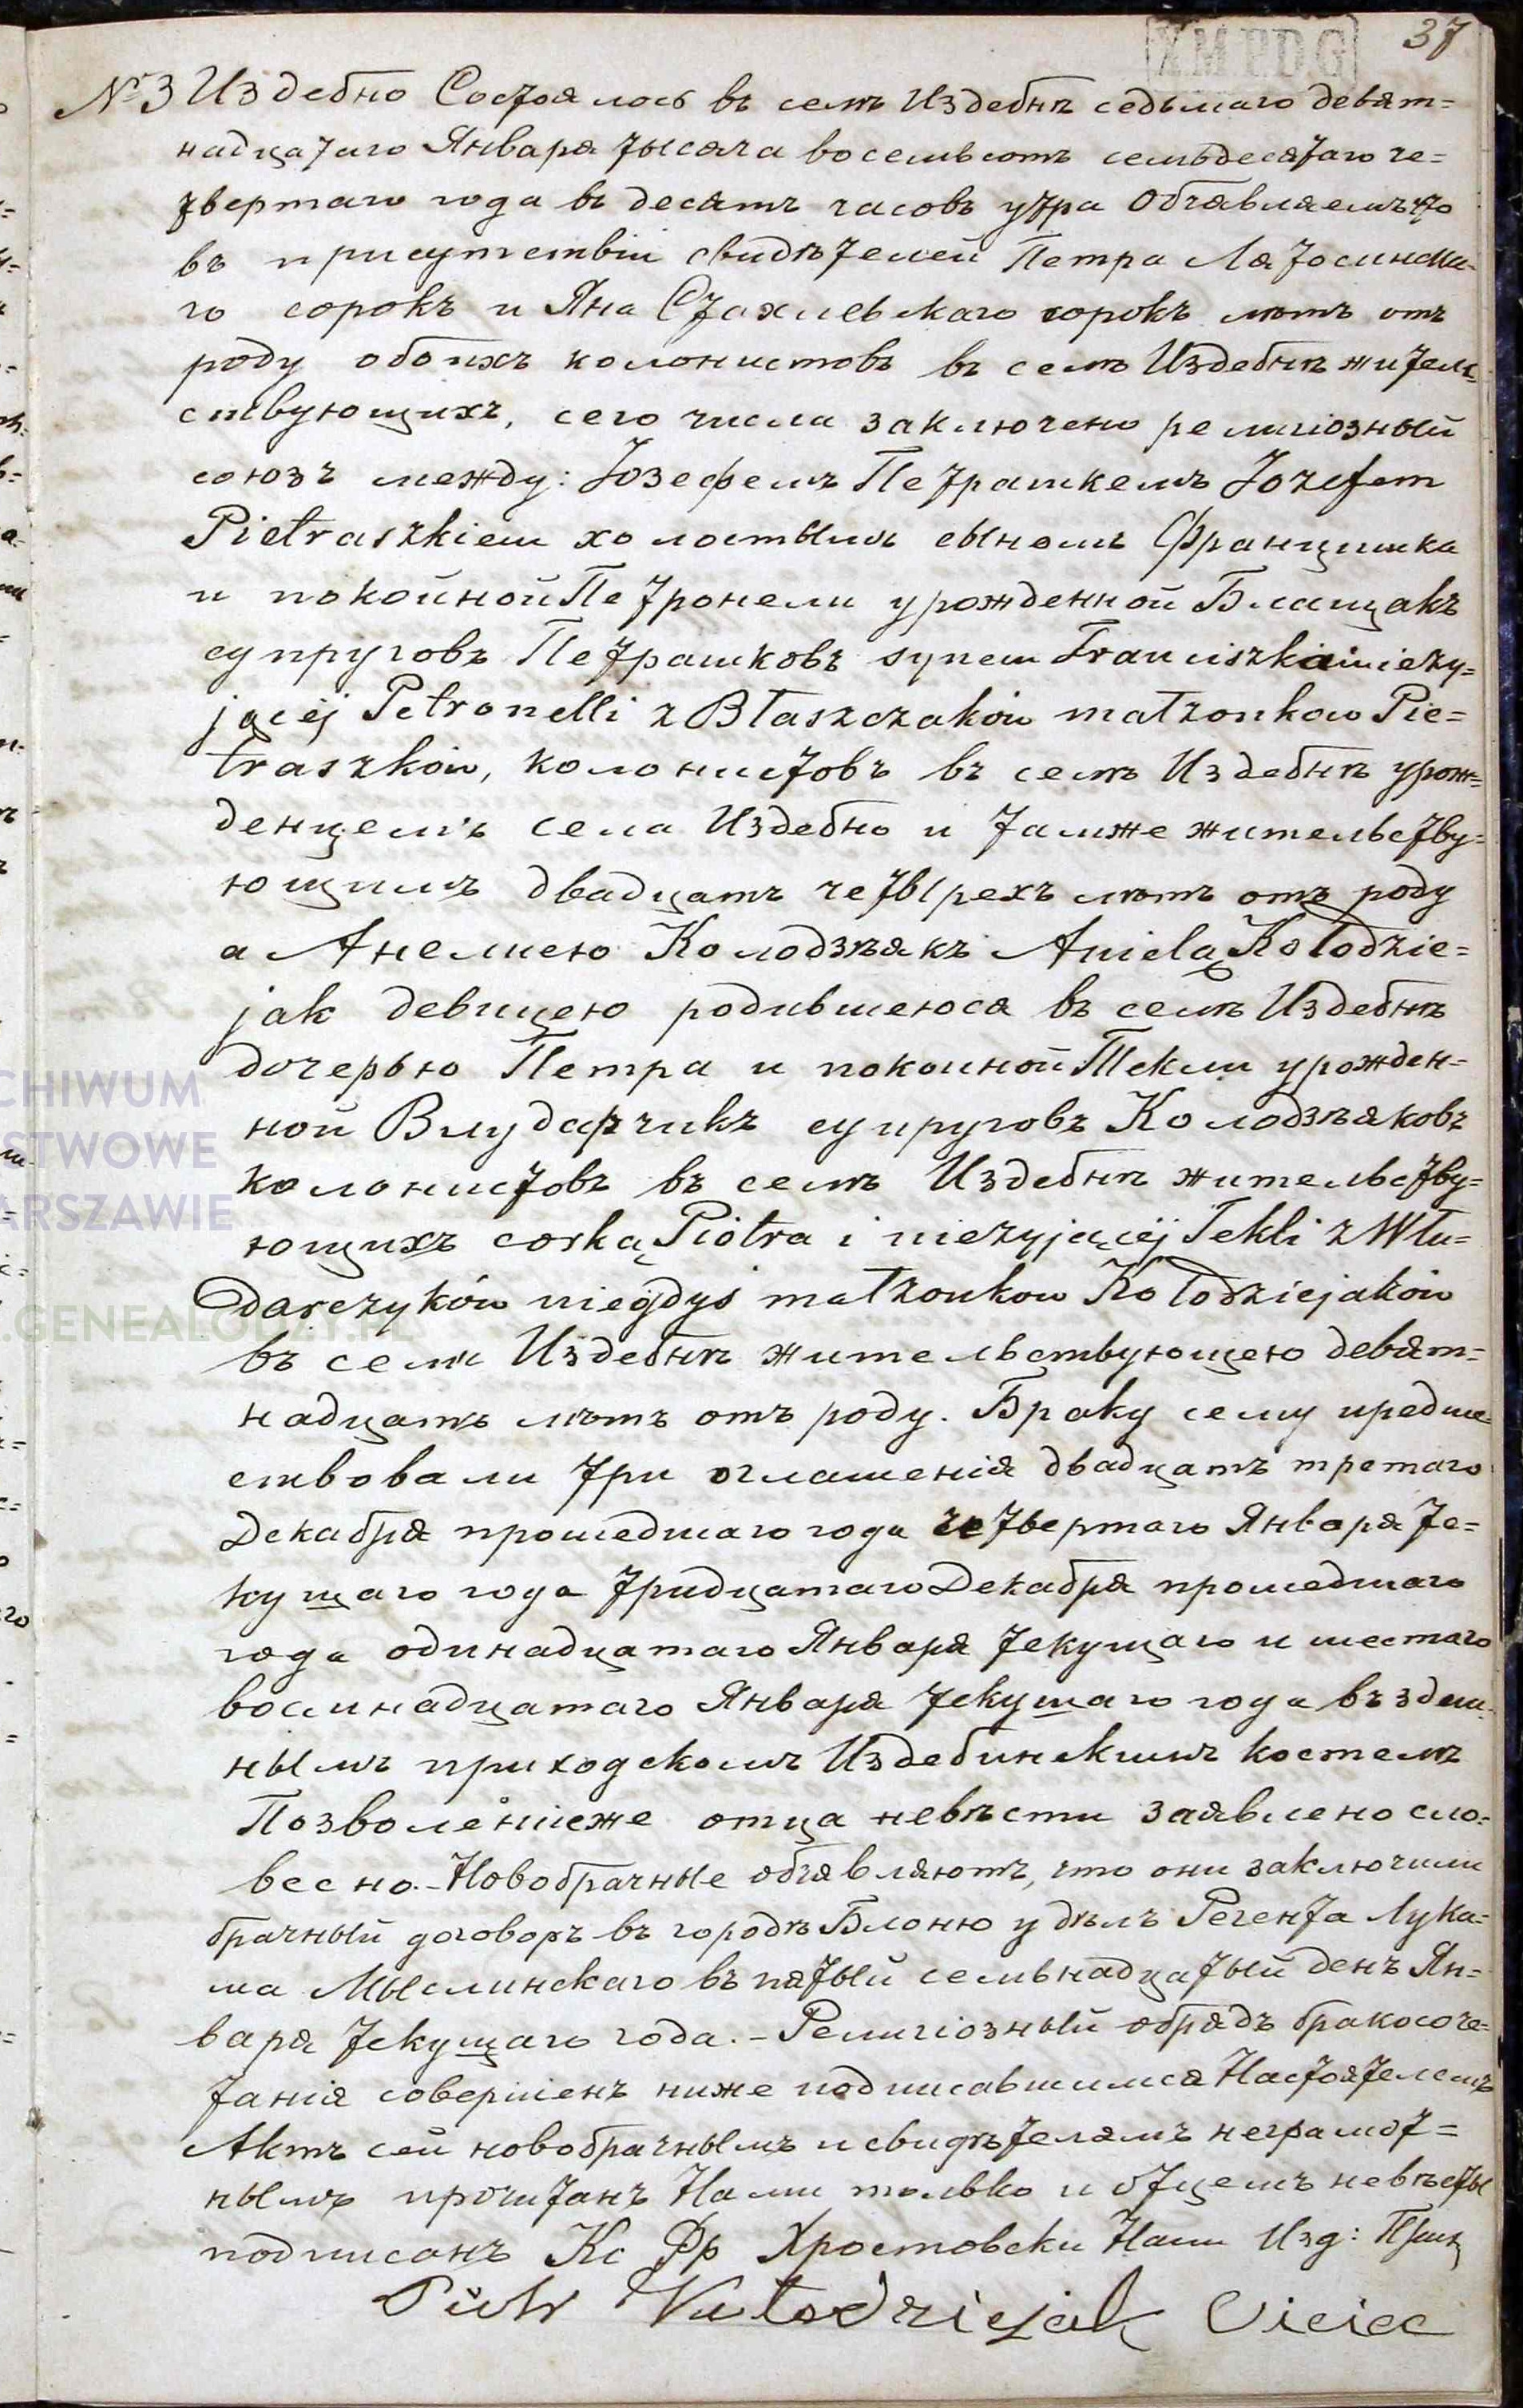 37
ХМ РDG
№ 3 Издебно Состоялось въ селѣ Издебнѣ седьмаго девят=
надцатаго Января тысяча восемьсотъ семьдесятаго че=
твертаго года въ десять часовъ утра Объявляемъ что
въ присутствіи свидѣтелей Петра Лятосинска-
го сорокъ и Яна Стахлевскаго сорокъ лѣтъ отъ
роду обоихъ колонистовъ въ селѣ Издебнѣ житель=
ствующихъ, сего числа заключено религіозный
союзъ между: Іозефемъ Петрашкемъ Jozefem
Pietraszkiem холостымъ сыномъ Францишка
и покойной Петронели урожденной Блащакъ
супруговъ Петрашковъ synem Franciszka i nieży=
jącéj Petronelli z Błaszczaków małżonków Pie=
traszków, колонистовъ въ селѣ Издебнѣ урож=
денцемъ села Издебно и тамже жительству=
ющимъ двадцать четырехъ лѣтъ отъ роду
а Анелиею Колодзѣякъ Anielą Kołodzie=
jak девицею родившеюся въ селѣ Издебнѣ
дочерью Петра и покойной Текли урожден=
ной Влударчикъ супруговъ Колодзѣяковъ
колонистовъ въ селѣ Издебнѣ жительству=
ющихъ corką Piotra i nieżyjącéj Tekli z Włu=
darczyków niegdyś małżonków Kołodziejaków
въ селѣ Издебнѣ жительствующею девят=
надцать лѣтъ отъ роду. Браку сему предше=
ствовали три оглашенія двадцать третаго
Декабря прошедшаго года четвертаго Января те=
кущаго года тридцатаго Декабря прошедшаго
года одинадцатаго Января текущаго и шестаго
восминадцатаго Января текущаго года въ здеш-
нымъ приходскомъ Издебинскимъ костелѣ
Позволеніеже отца невѣсти заявлено сло=
весно. – Новобрачные объявляютъ, что они заключили
брачный договоръ въ городѣ Блоню у дѣлъ Регента Лука=
ша Мыслинскаго въ пятый семьнадцатый денъ Ян=
варя текущаго года. – Религіозный обрядъ бракосоче=
танія совершенъ ниже подписавшимся Настоятелемъ
Актъ сей новобрачнымъ и свидѣтелямъ неграмот=
нымъ прочитанъ Нами только и отцемъ невѣсты
подписанъ Кс Фр Хростовски Нашъ Изд:
Piotr Kołodziejak Oiciec
CHIWUM
STWOWE
ARSZAWIE
.GENEALODZY.PL